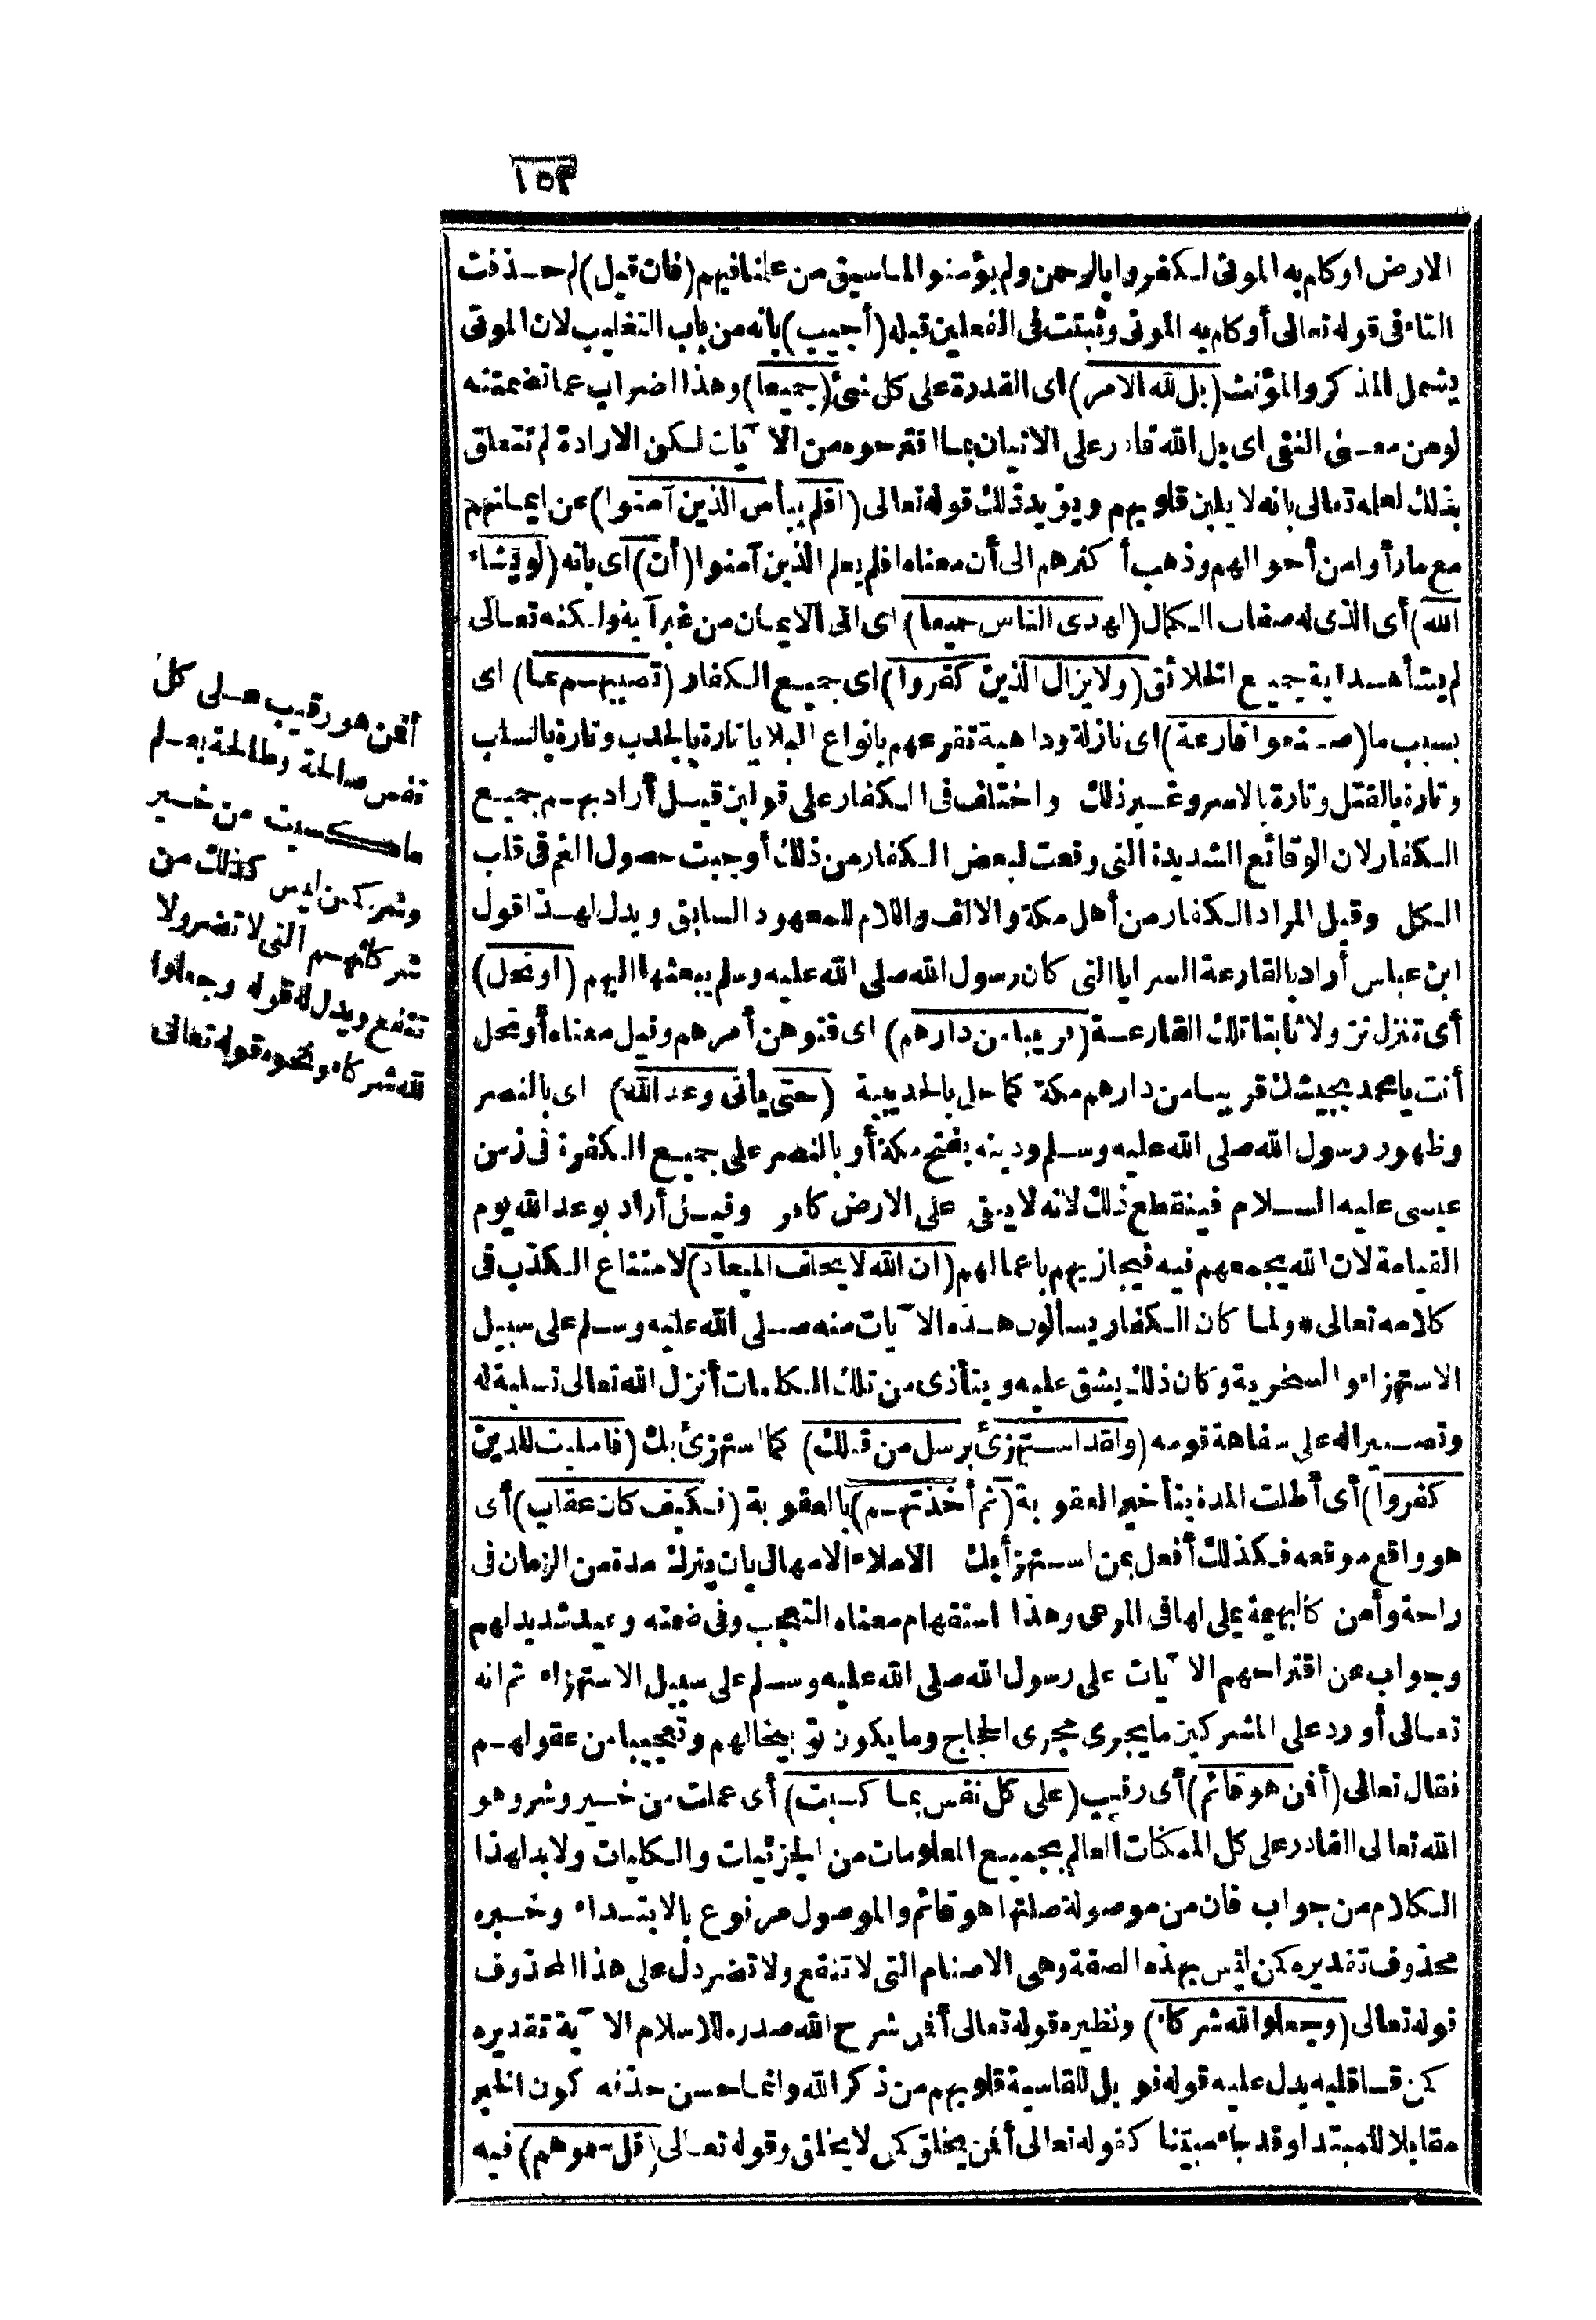 ١٥٣
الارض اوكلم به الموتى لكفروا بالرحمن ولم يؤمنوا لما سبق من علمنا فيهم (فان قيل) لم حذفت
التاء فى قوله تعالى أوكلم به الموتى وثبتت فى الفعلين قبله (أجيب) بانه من باب التغليب لان الموتى
يشمل المذكر والمؤنث (بل لله الامر) اى القدرة على كل شئ (جميعا) وهذا اضراب عما تضمنته
لو من معنى النفى اى بل الله قادر على الاتيان بما اقترحوه من الآيات لكن الارادة لم تتعلق
بذلك لعلمه تعالى بانه لا يلين قلوبهم ويؤيد ذلك قوله تعالى (افلم ييأس الذين آمنوا) عن ايمانهم
مع مارأوا من أحوالهم وذهب أكثرهم الى أن معناه افلم يعلم الذين آمنوا (أن) اى بانه (لو يشاء
الله) أى الذى له صفات الكمال (لهدى الناس جميعا) اى الى الايمان من غير آية ولكنه تعالى
لم يشأ هداية جميع الخلائق (ولا يزال الذين كفروا) اى جميع الكفار (تصيبهم بما) اى
بسبب ما (صنعوا قارعة) اى نازلة وداهية تقرعهم بانواع البلايا تارة بالجدب وتارة بالسلب
وتارة بالقتل وتارة بالاسر وغير ذلك واختلف فى الكفار على قولين قيل أراد بهم جميع
الكفار لان الوقائع الشديدة التى وقعت لبعض الكفار من ذلك أوجبت حصول الغم فى قلب
الكل وقيل المراد الكفار من أهل مكة والالف واللام للمعهود السابق ويدل لهذا قول
ابن عباس أراد بالقارعة السرايا التى كان رسول الله صلى الله عليه وسلم يبعثها اليهم (او تحل)
أى تنزل نزولا ثابتا تلك القارعة (قريبا من دارهم) اى فتوهن أمرهم وقيل معناه أو تحل
أنت يا محمد بجيشك قريبا من دارهم مكة كما حل بالحديبية (حتى يأتى وعد الله) اى بالنصر
وظهور رسول الله صلى الله عليه وسلم ودينه بفتح مكة أو بالنصر على جميع الكفرة فى زمن
عيسى عليه السلام فينقطع ذلك لانه لا يبقى على الارض كافر وقيل أراد بوعد الله يوم
القيامة لان الله يجمعهم فيه فيجازيهم باعمالهم (ان الله لا يخلف الميعاد) لامتناع الكذب فى
كلامه تعالى * ولما كان الكفار يسألون هذه الآيات منه صلى الله عليه وسلم على سبيل
الاستهزاء والسخرية وكان ذلك يشق عليه ويتأذى من تلك الكلمات أنزل الله تعالى تسلية له
وتصبيرا له على سفاهة قومه (ولقد استهزئ برسل من قبلك) كما استهزئ بك (فامليت للذين
كفروا) أى أطلت المدة بتأخير العقوبة (ثم أخذتهم) بالعقوبة (فكيف كان عقاب) أى
هو واقع موقعه فكذلك أفعل بمن استهزأ بك الاملاء الامهال بان يترك مدة من الزمان فى
راحة وأمن كالبهيمة يملى لها فى المرعى وهذا استفهام معناه التعجب وفى ضمنه وعيد شديد لهم
وجواب عن اقتراحهم الآيات على رسول الله صلى الله عليه وسلم على سبيل الاستهزاء ثم انه
تعالى أورد على المشركين ما يجرى مجرى الحجاج وما يكون توبيخا لهم وتعجيبا من عقولهم
فقال تعالى (أفمن هو قائم) أى رقيب (على كل نفس بما كسبت) أى عملت من خير وشر وهو
الله تعالى القادر على كل الممكنات العالم بجميع المعلومات من الجزئيات والكليات ولا بد لهذا
الكلام من جواب فان من موصولة صلتها هو قائم والموصول مرفوع بالابتداء وخبره
محذوف تقديره كمن ليس بهذه الصفة وهى الاصنام التى لا تنفع ولا تضر دل على هذا المحذوف
قوله تعالى (وجعلوا لله شركاء) ونظيره قوله تعالى أفمن شرح الله صدره للاسلام الآية تقديره
كمن قسا قلبه يدل عليه قوله فويل للقاسية قلوبهم من ذكر الله وانما حسن حذفه كون الخبر
مقابلا للمبتدا وقد جاء مبينا كقوله تعالى أفمن يخلق كمن لا يخلق وقوله تعالى (قل سموهم) فيه
أفمن هو رقيب على كل
نفس صالحة وطالحة يعلم
ما كسبت من خير
وشر كمن ليس كذلك من
شركائهم التى لا تضر ولا
تنفع ويدل له قوله وجعلوا
لله شركاء ونحوه قوله تعالى